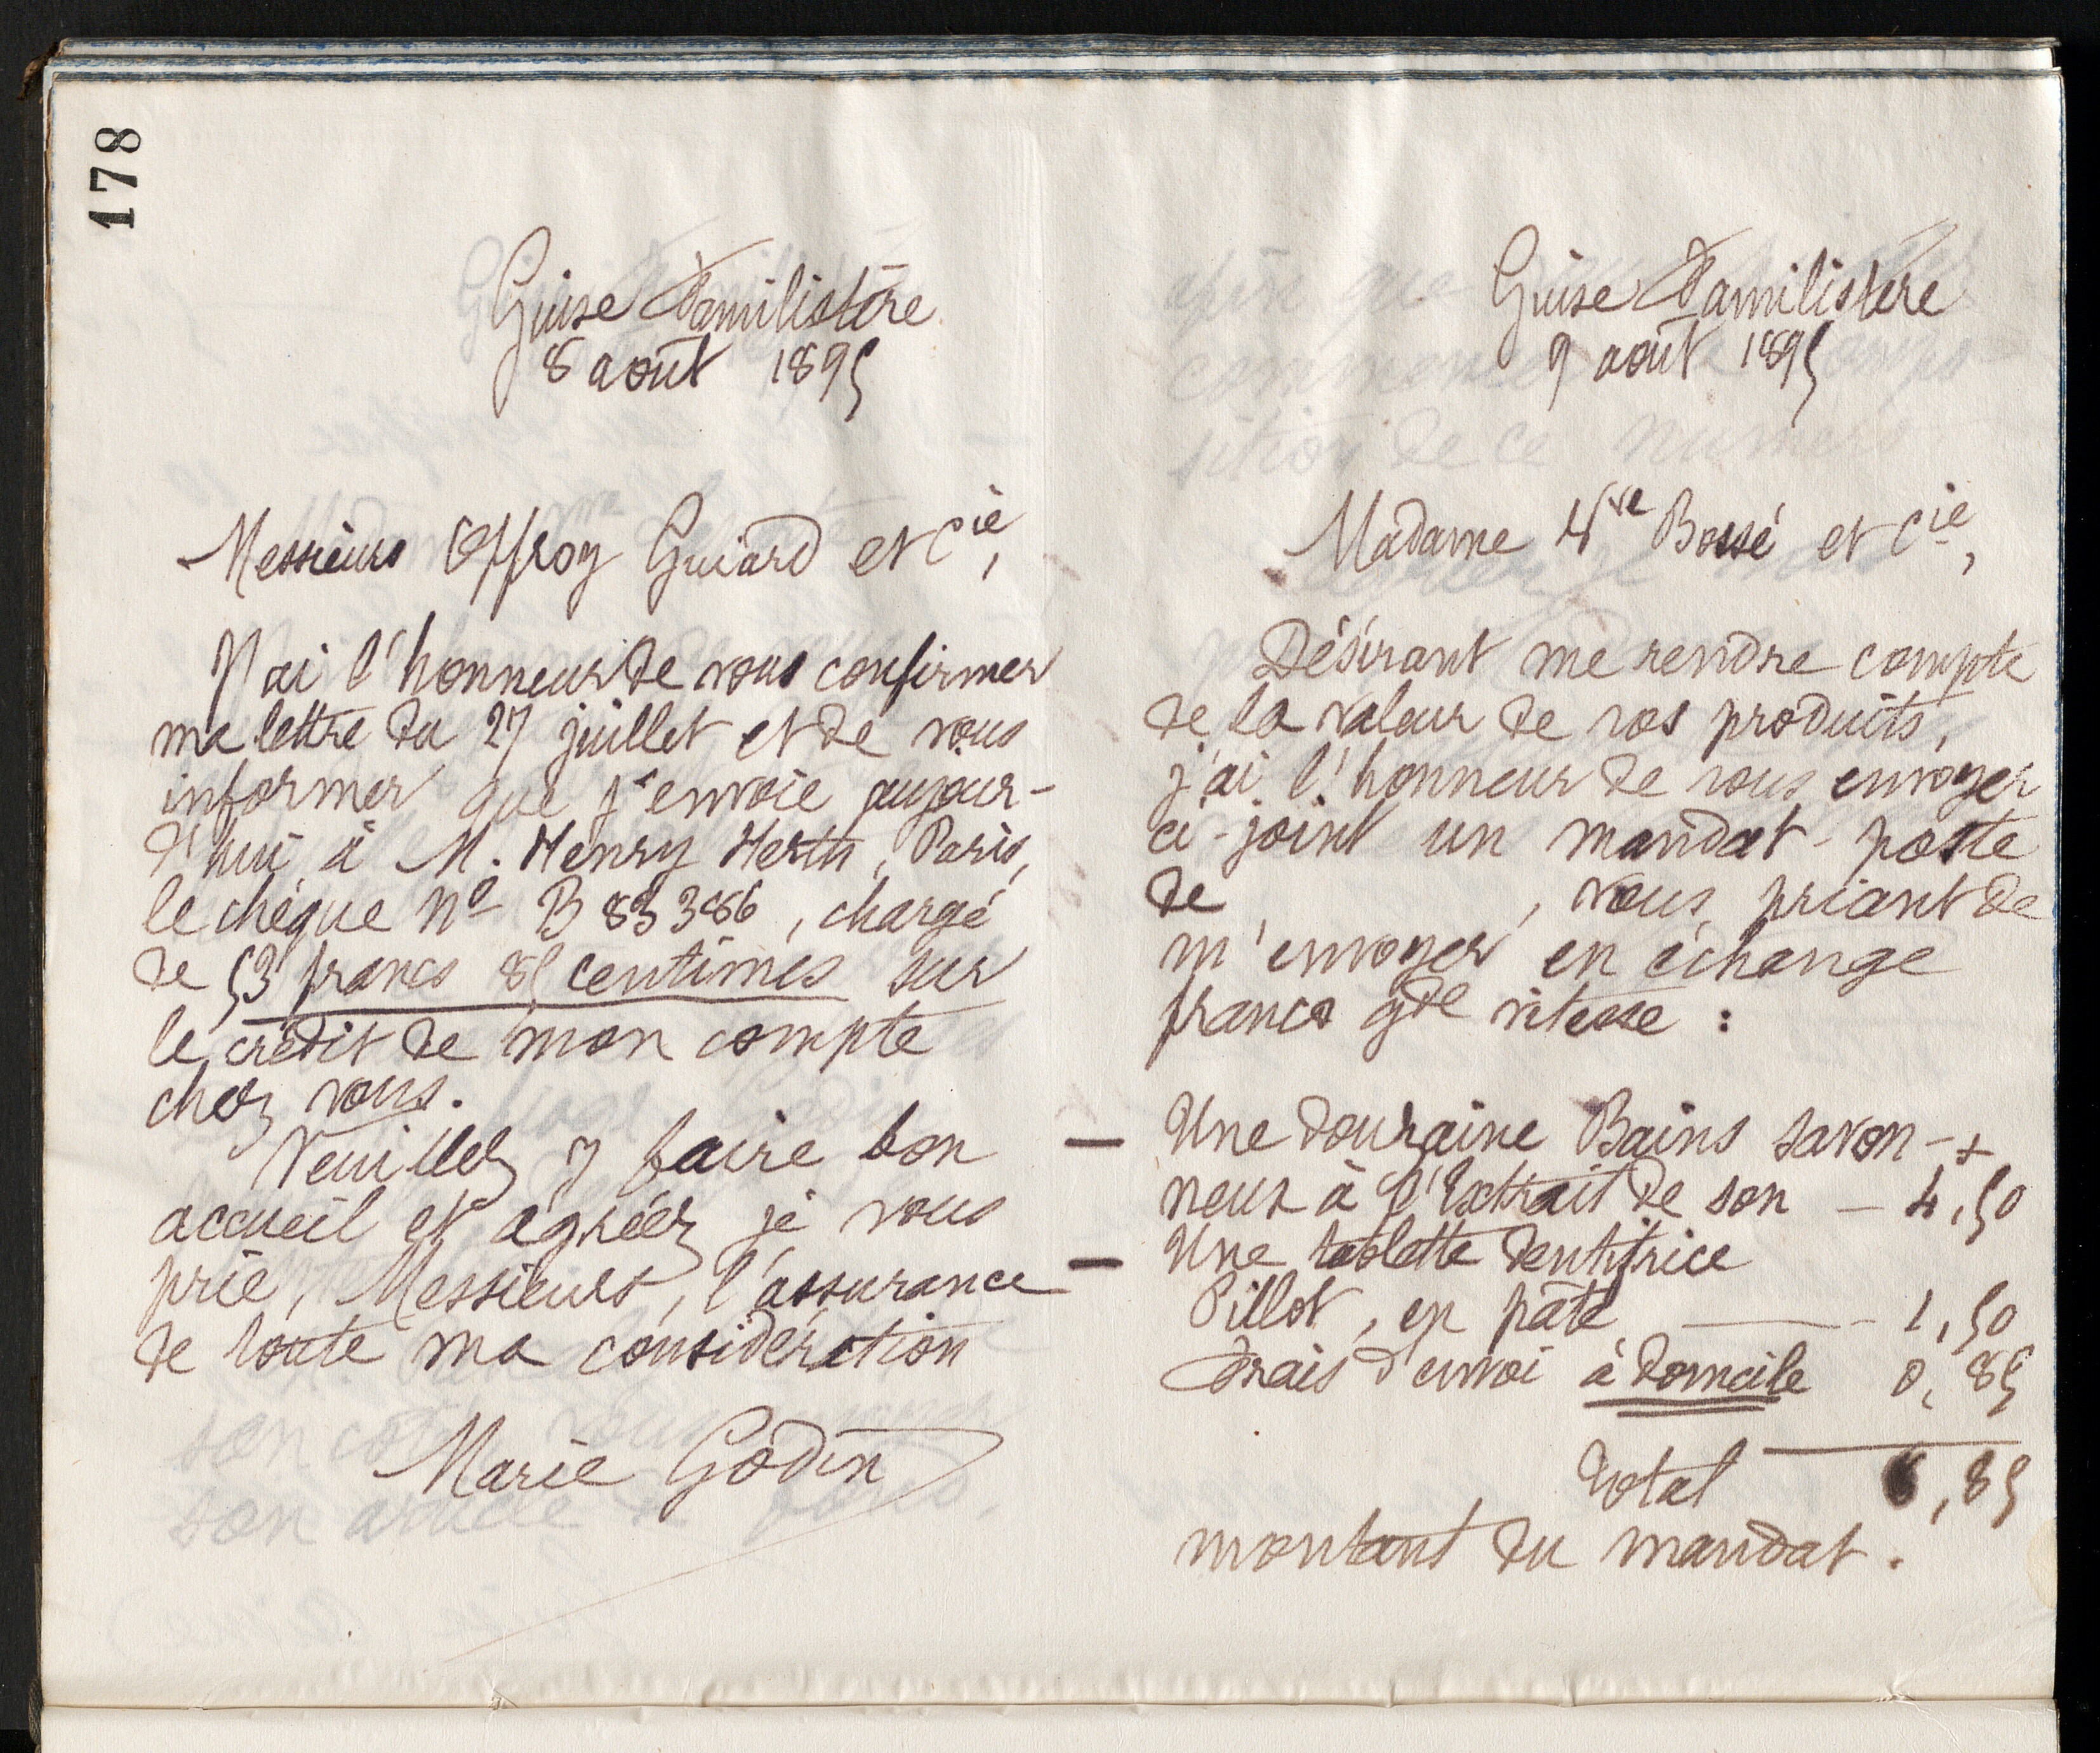 178
Guise Familistère
8 août 1895
Messieurs Offroy Guiard et Cie,
J'ai l'honneur de vous confirmer
ma lettre du 27 juillet et de vous
informer que j'envoie aujour-
d'hui à M. Henry Herth, Paris,
le chèque No B 83386, chargé
de 53 francs 85 centimes sur
le crédit de mon compte
chez vous.
Veuillez y faire bon
accueil et agréer, je vous
prie, Messieurs, l'assurance
de toute ma considération
Marie Godin
Guise Familistère
9 août 1895
Madame Vve Bossé et Cie,
Désirant me rendre compte
de la valeur de vos produits,
j'ai l'honneur de vous envoyer
ci-joint un mandat-poste
de , vous priant de
m'envoyer en échange
franco gde vitesse :
— Une douzaine Bains savon-
neux à l'Extrait de son — 4,50
— Une tablette dentifrice
Pillot, en pâte — 1,50
Frais d'envoi à domicile 0,85
Total 6,85
montant du mandat.